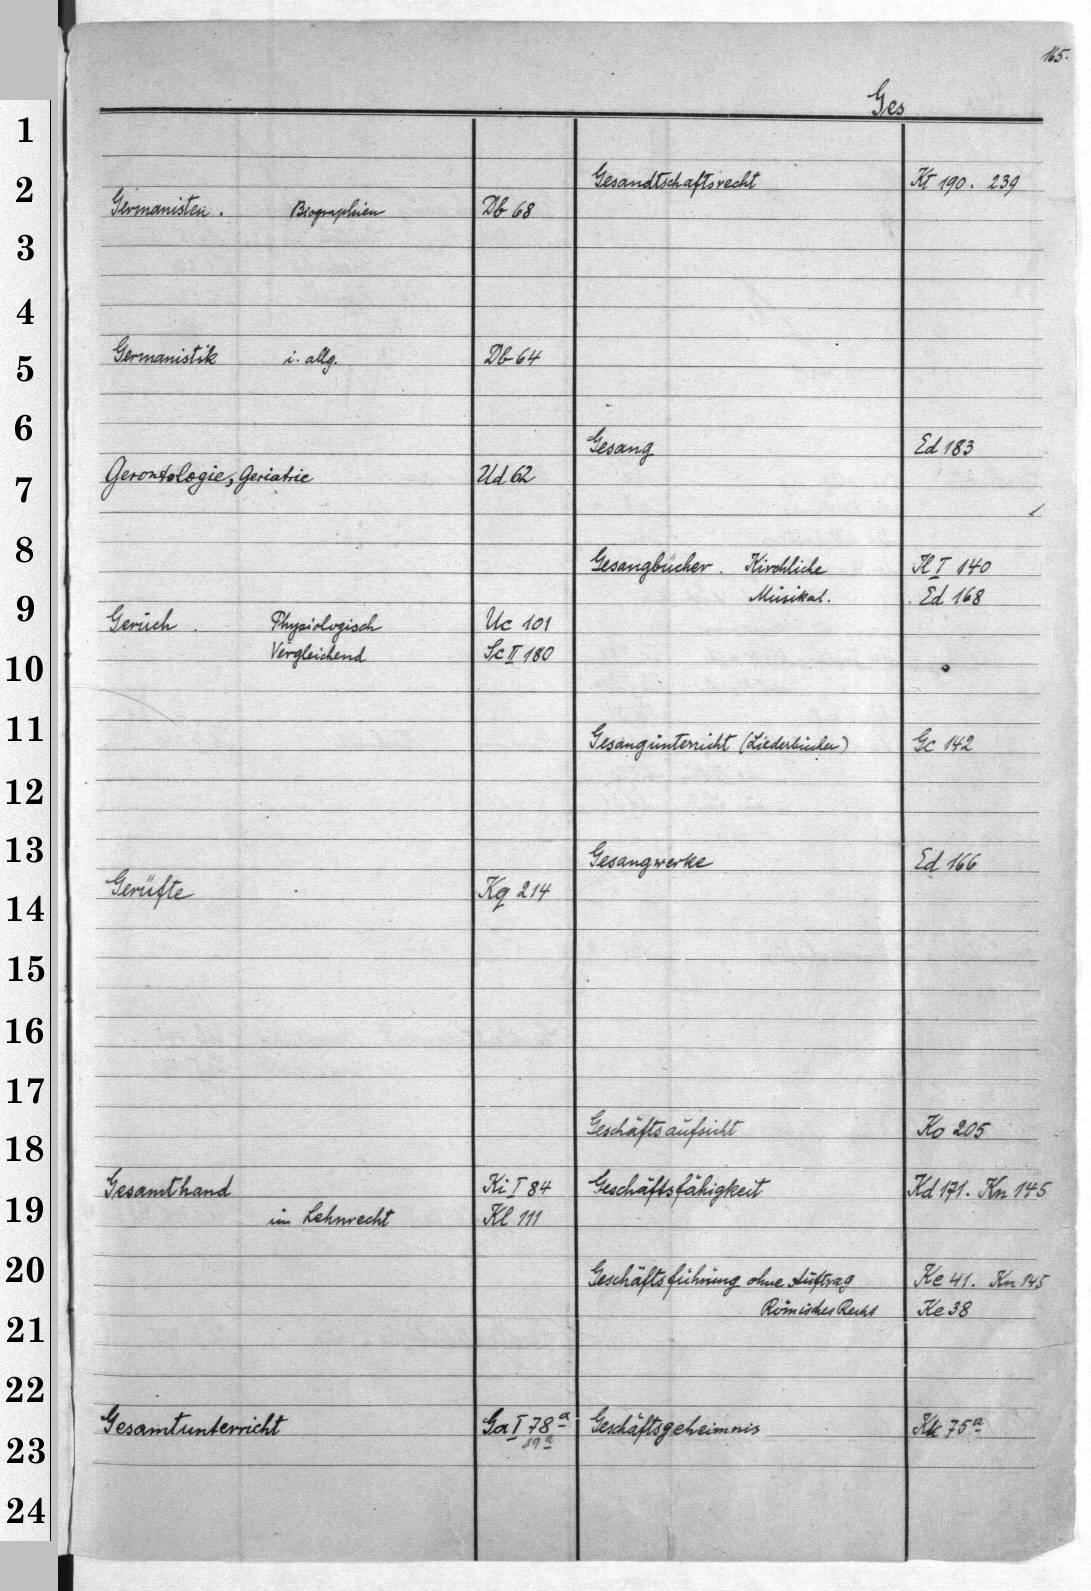 165.
Ges
1
2
3
4
5
6
7
8
9
10
11
12
13
14
15
16
17
18
19
20
21
22
23
24
Germanisten. Biographien Db 68
Germanistik i. allg. Db 64
Gerontologie, Geriatrie Ud 62
Geruch. Physiologisch Uc 101
Vergleichend Sc II 180
Gerüfte Kq 214
Gesamthand Ki I 84
im Lehnrecht Kl 111
Gesamtunterricht Ga I 78a
89a
Gesandtschaftsrecht Kt 190. 239
Gesang Ed 183
Gesangbücher. Kirchliche Il I 140
Musikal. Ed 168
Gesangunterricht (Liederbücher) Gc 142
Gesangwerke Ed 166
Geschäftsaufsicht Ko 205
Geschäftsfähigkeit Kd 171. Kn 145
Geschäftsführung ohne Auftrag Ke 41. Kn 145
Römisches Recht Ke 38
Geschäftsgeheimnis Kk 75a